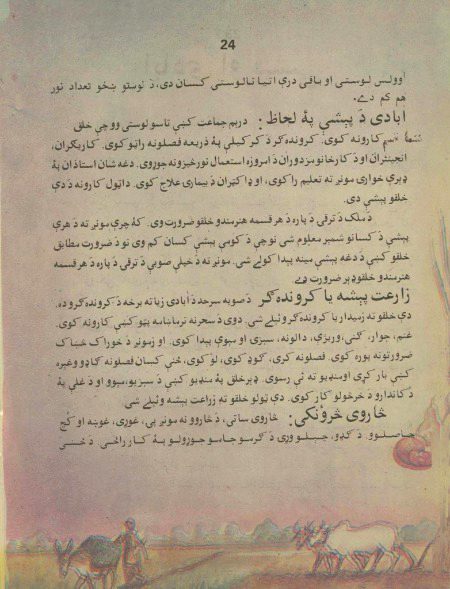 24
اوولس لوستی او باقی درې اتیا نالوستی کسان دی، د لوستو ښځو تعداد نور
هم کم دے۔
آبادی دَ پېشې پهٔ لحاظ: دریم جماعت کښې تاسو لوستی وو چې خلق
قسم کارونه کوی۔ کرونده ګر دَ کر کیلې پهٔ ذریعه فصلونه راټو کوی۔ کاریګران،
انجینئران او دَ کارخانو مزدوران دَ امروزه استعمال نور څیزونه جوړوی۔ دغه شان استاذان پهٔ
ډېرې خوارۍ مونږ ته تعلیم راکوی، او ډاکټران دَ بیمارۍ علاج کوی۔ دا ټول کارونه دَ دې
خلقو پېشې دی۔
دَ ملک دَ ترقۍ دَ پاره دَ هر قسمه هنرمندو خلقو ضرورت وی۔ کهٔ چرې مونږ ته دَ هرې
پېشې دَ کسانو شمېر معلوم شی نو چې دَ کومې پېشې کسان کم وی نو دَ ضرورت مطابق
خلقو کښې دَ دغه پېشې مینه پیدا کولے شی۔ مونږ ته دَ خپلې صوبې دَ ترقۍ دَ پاره دَ هر قسمه
هنرمندو خلقو ډېر ضرورت دے۔
زراعت پېشه یا کرونده ګر دَ صوبه سرحد دَ آبادۍ زیاته برخه دَ کرونده ګرو ده۔
دې خلقو ته زمیدار یا کرونده ګر وئیلے شی۔ دوی دَ سحر نه تر ماښامه پټو کښې کارونه کوی۔
غنم، جوار، ګنې، وریژې، دالونه، سبزی او مېوې پیدا کوی۔ او زمونږ دَ خوراک څښاک
ضرورتونه پوره کوی۔ فصلونه کری، ګوډ کوی، لو کوی، ځنې کسان فصلونه ګاډو وغیره
کښې بار کړی او منډیو ته ئې رسوی۔ ډېر خلق پهٔ منډیو کښې دَ سبزیو، مېوو او دَ غلې پهٔ
دُکاندارۍ دَ خرڅولو کار کوی۔ دې ټولو خلقو ته زراعت پېشه وئیلے شی۔
څاروی څرونکی: څاروی ساتی، دَ څاروو نه مونږ پۍ، غوړی، غوښه او کُچ
حاصلوو۔ دَ ګډو، چیلو وړۍ دَ ګرمو جامو جوړولو پهٔ کار راځی۔ دَ څسی